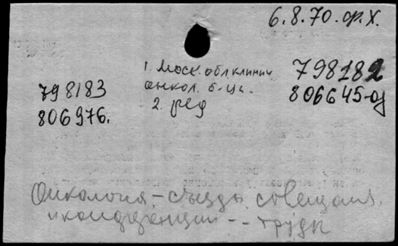 6.8.70. ор.Х.
1. Моск. обл клинич 798182
798183 онкол. б-ца. 806645-од
806976. 2. ред
Онкология - съезды, совещания,
и конференции -- труды